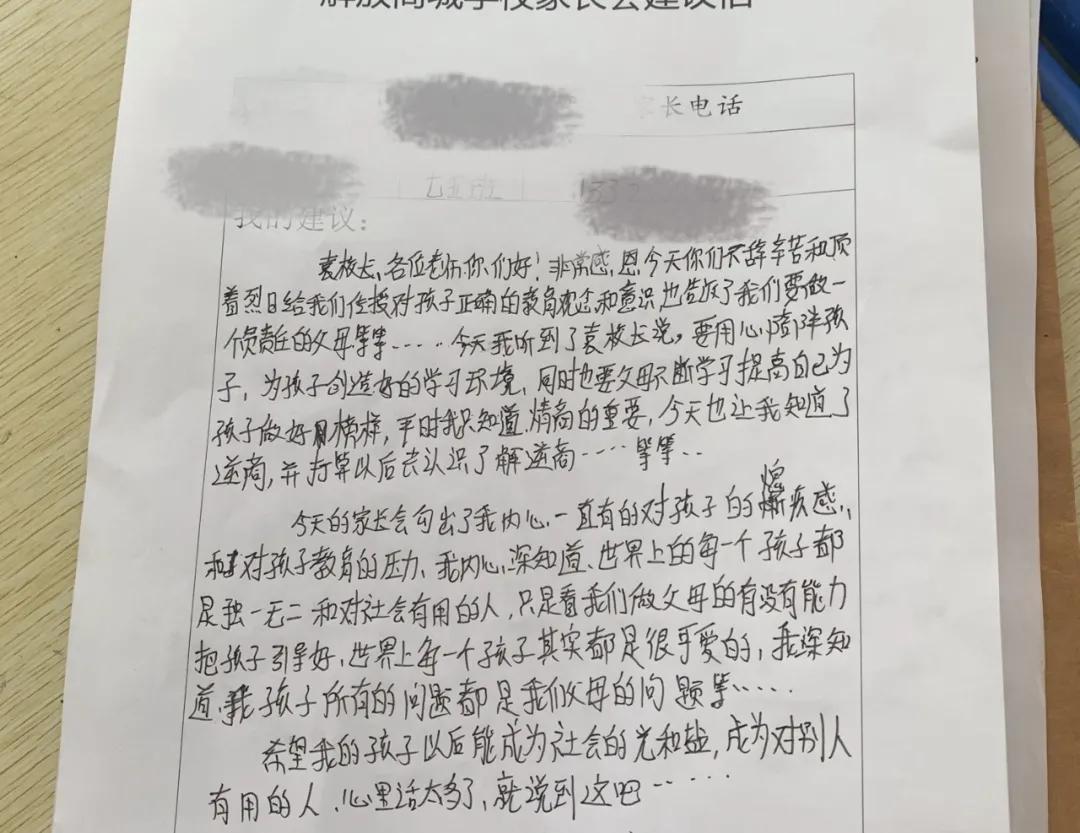 解放商城学校家长会建议信
家长电话
七五班 133 2
我的建议：
袁校长、各位老师你们好！非常感恩今天你们不辞辛苦和顶
着烈日给我们传授对孩子正确的教育观念和意识也告诉了我们要做一
个负责任的父母等等……今天我听到了袁校长说，要用心陪伴孩
子，为孩子创造好的学习环境，同时也要父母不断学习提高自己为
孩子做好榜样，平时我只知道情商的重要，今天也让我知道了
逆商，并打算以后去认识了解逆商……等等..
今天的家长会勾出了我内心一直有的对孩子的愧疚感，
和对孩子教育的压力、我内心深知道、世界上的每一个孩子都
是独一无二和对社会有用的人，只是看我们做父母的有没有能力
把孩子引导好，世界上每一个孩子其实都是很可爱的，我深知
道，我孩子所有的问题都是我们父母的问题等……
希望我的孩子以后能成为社会的光和盐，成为对别人
有用的人、心里话太多了，就说到这吧……